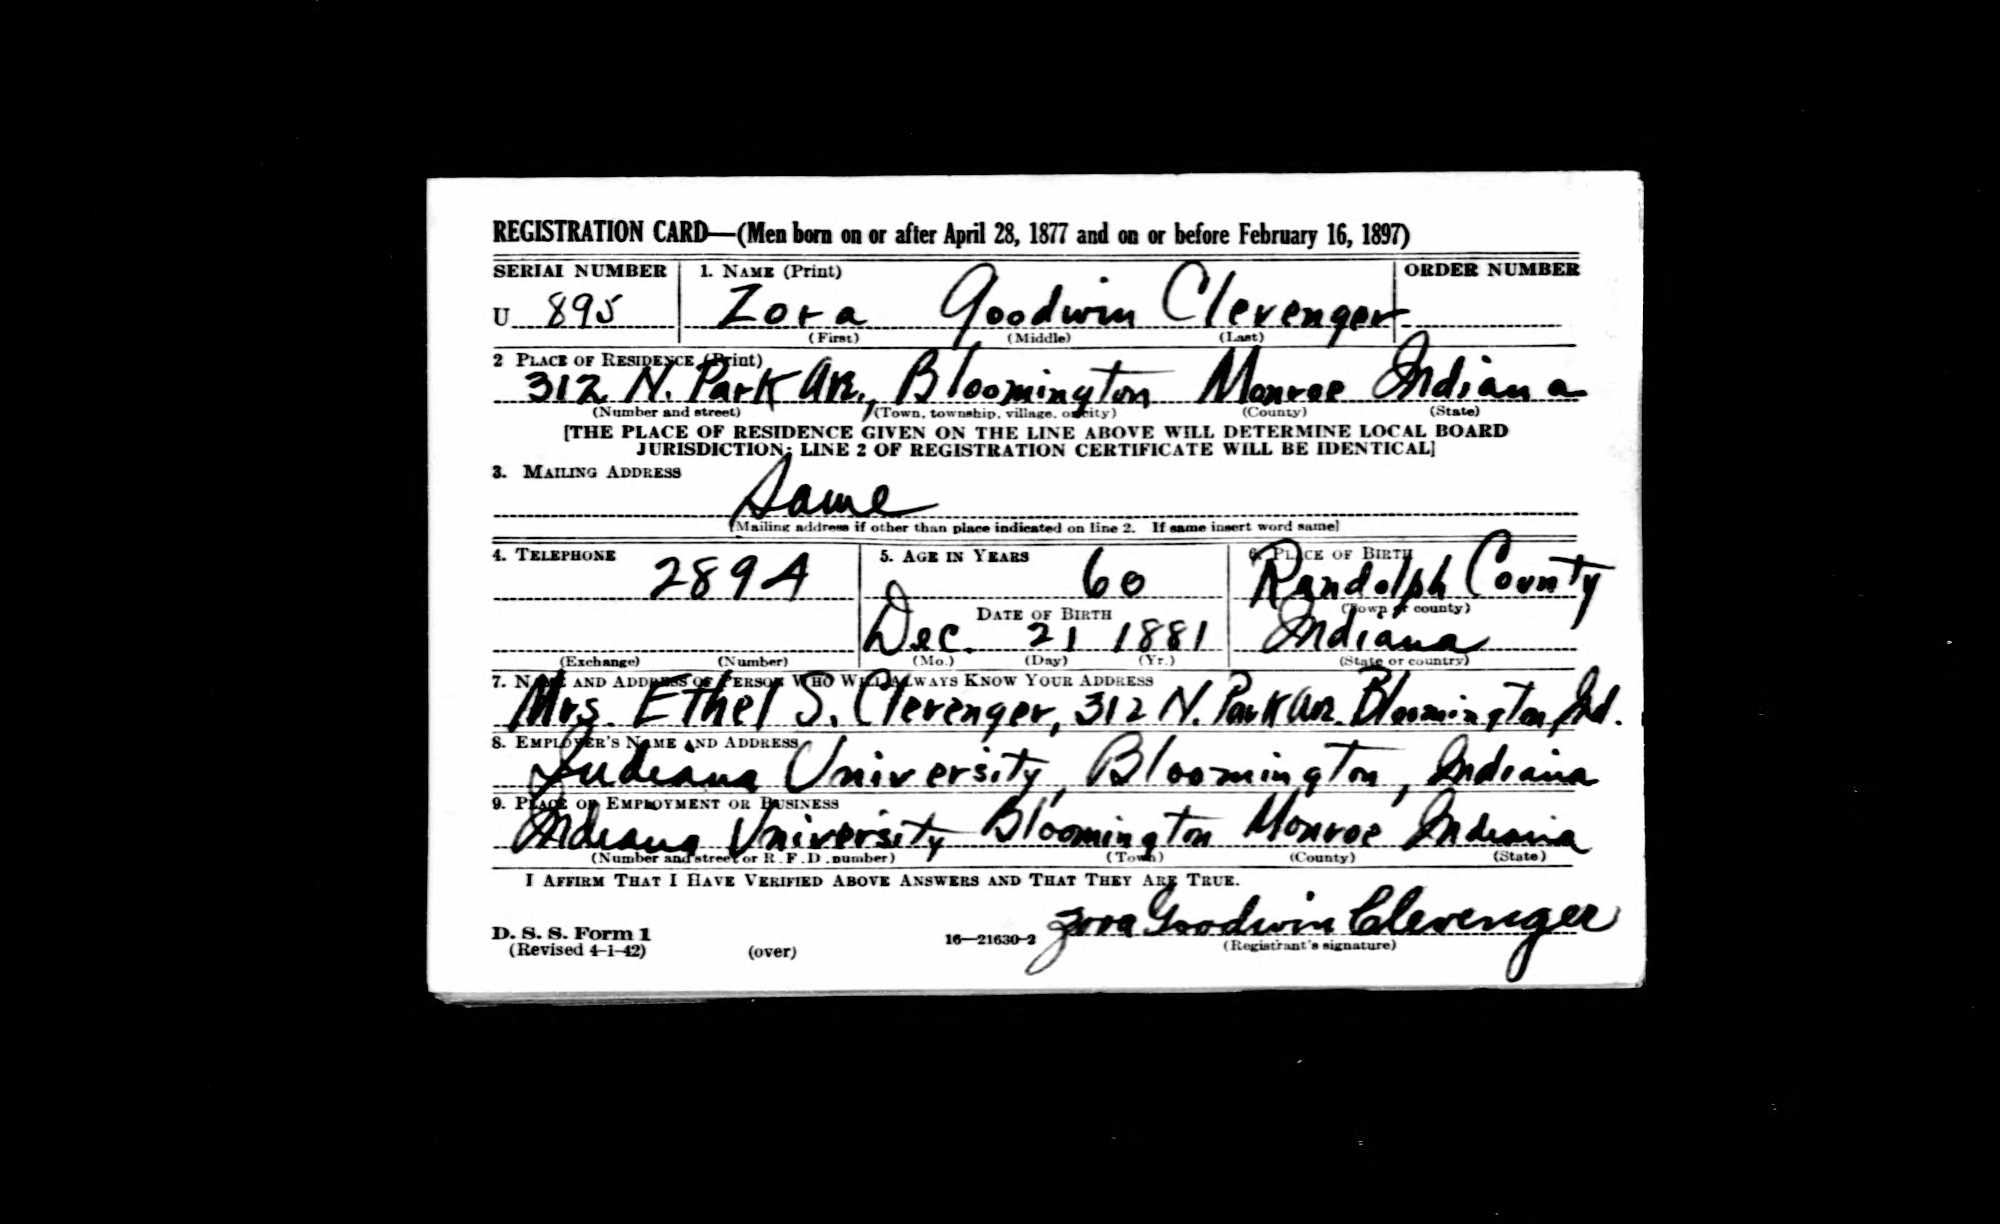 REGISTRATION CARD—(Men born on or after April 28, 1877 and on or before February 16, 1897)
SERIAL NUMBER 1. NAME (Print) ORDER NUMBER
U 895 Zora Goodwin Clevenger
(First) (Middle) (Last)
2 PLACE OF RESIDENCE (Print)
312 N. Park Ave., Bloomington Monroe Indiana
(Number and street) (Town, township, village, or city) (County) (State)
[THE PLACE OF RESIDENCE GIVEN ON THE LINE ABOVE WILL DETERMINE LOCAL BOARD
JURISDICTION; LINE 2 OF REGISTRATION CERTIFICATE WILL BE IDENTICAL]
3. MAILING ADDRESS
Same
(Mailing address if other than place indicated on line 2. If same insert word same)
4. TELEPHONE 5. AGE IN YEARS 6. PLACE OF BIRTH
2894 60 Randolph County
DATE OF BIRTH (Town or county)
Dec. 21 1881 Indiana
(Exchange) (Number) (Mo.) (Day) (Yr.) (State or country)
7. NAME AND ADDRESS OF PERSON WHO WILL ALWAYS KNOW YOUR ADDRESS
Mrs. Ethel S. Clevenger, 312 N. Park Ave. Bloomington, Ind.
8. EMPLOYER'S NAME AND ADDRESS
Indiana University, Bloomington, Indiana
9. PLACE OF EMPLOYMENT OR BUSINESS
Indiana University Bloomington Monroe Indiana
(Number and street or R. F. D. number) (Town) (County) (State)
I AFFIRM THAT I HAVE VERIFIED ABOVE ANSWERS AND THAT THEY ARE TRUE.
Zora Goodwin Clevenger
D. S. S. Form 1
(Revised 4-1-42) (over) 16—21630-2 (Registrant's signature)